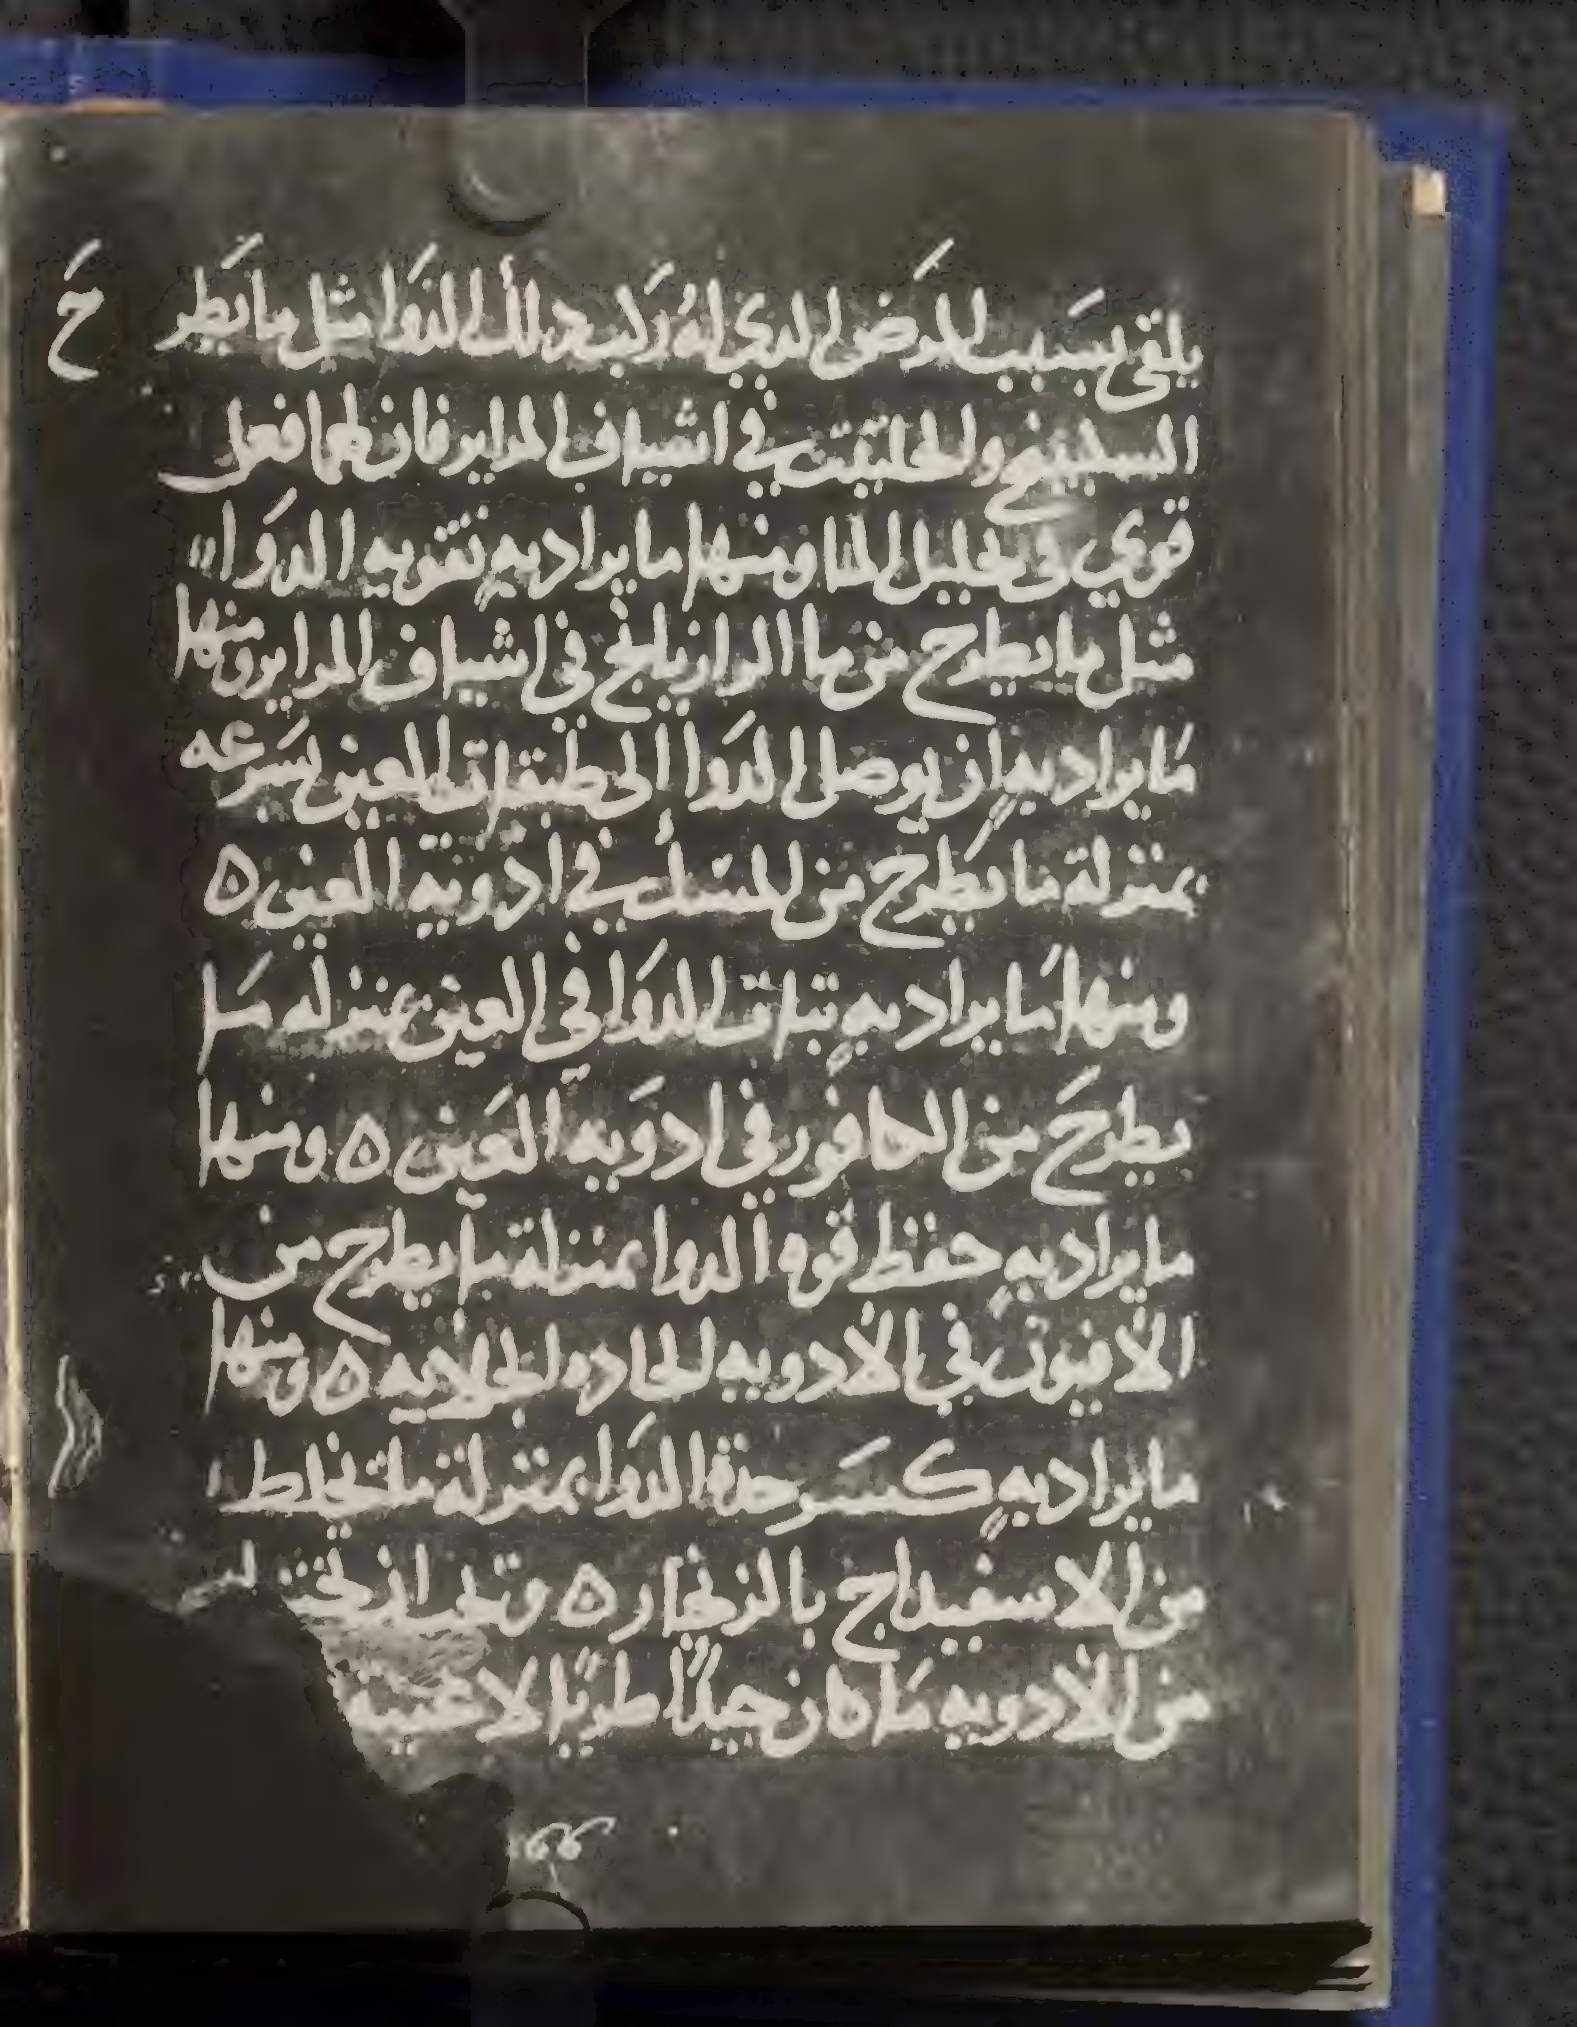 يلقى بسَبب المرَض الدي لهُ رَكب دلك الدوَا مثل ما يَطر حَ
السكبينج والحلتيت في اشياف المراير فان لهما فعل
قوي في تحليل الما ومنها ما يراد بهِ تقويه الدوَا
مثل ما يطرح من ما الرازيانج في اشياف المراير ومنها
مَا يراد بهِ ان يوصل الدوَا الى طبقات العين بسَرعه
بمنزلة ما يَطرح من المسك في ادويه العين ه
ومنها مَا يراد بهِ تبات الدوَا في العين بمنزله مَا
يطرحَ من الكافور في ادوَيه العَين ه ومنها
ما يراد بهِ حفظ قوه الدوا بمنزلة ما يطرح من
الافيون في الادويه الحاده الجلاييه ه ومنها
ما يراد بهِ كسَر حدة الدوَا بمنزلة ما يخلط
من الاسفيداج بالزنجار ه ان
من الادويه مَا كان جيدًا طريًا لا